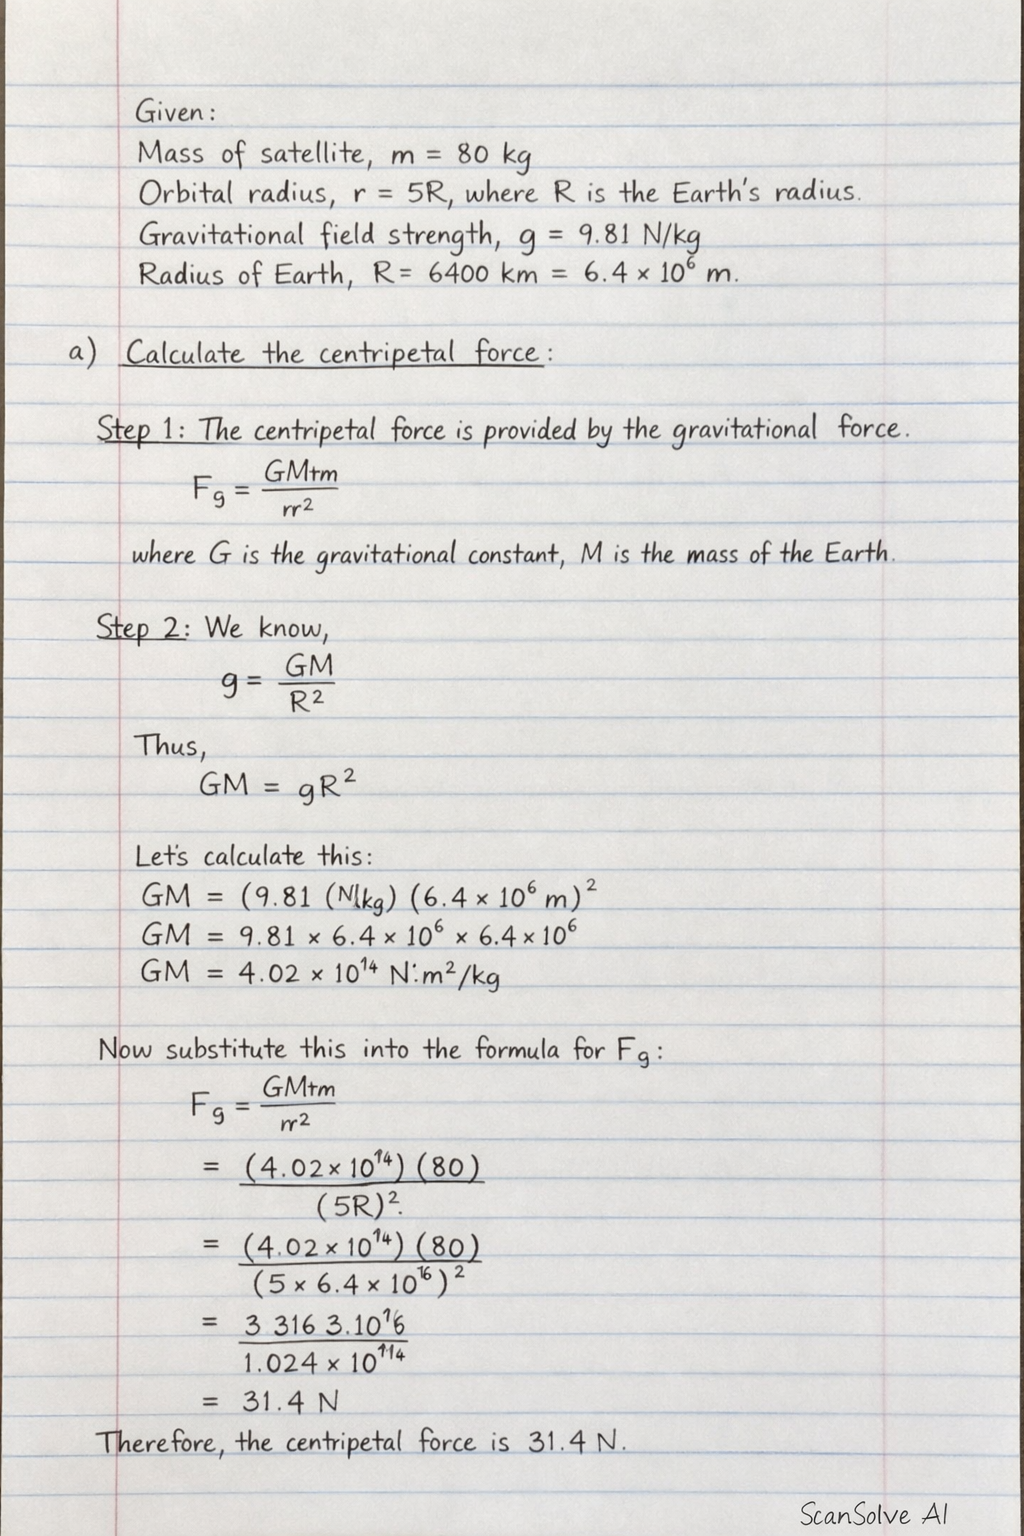 Given:
Mass of satellite, m = 80 kg
Orbital radius, r = 5R, where R is the Earth's radius.
Gravitational field strength, g = 9.81 N/kg
Radius of Earth, R = 6400 km = 6.4 × 10⁶ m.
a) Calculate the centripetal force:
Step 1: The centripetal force is provided by the gravitational force.
Fg = GMtm
rr²
where G is the gravitational constant, M is the mass of the Earth.
Step 2: We know,
g = GM
R²
Thus,
GM = gR²
Let's calculate this:
GM = (9.81 (N/kg) (6.4 × 10⁶ m)²
GM = 9.81 × 6.4 × 10⁶ × 6.4 × 10⁶
GM = 4.02 × 10¹⁴ N·m²/kg
Now substitute this into the formula for Fg:
Fg = GMtm
rr²
= (4.02 × 10¹⁴) (80)
(5R)².
= (4.02 × 10¹⁴) (80)
(5 × 6.4 × 10¹⁶)²
= 3 316 3.10¹6
1.024 × 10¹¹⁴
= 31.4 N
Therefore, the centripetal force is 31.4 N.
ScanSolve AI